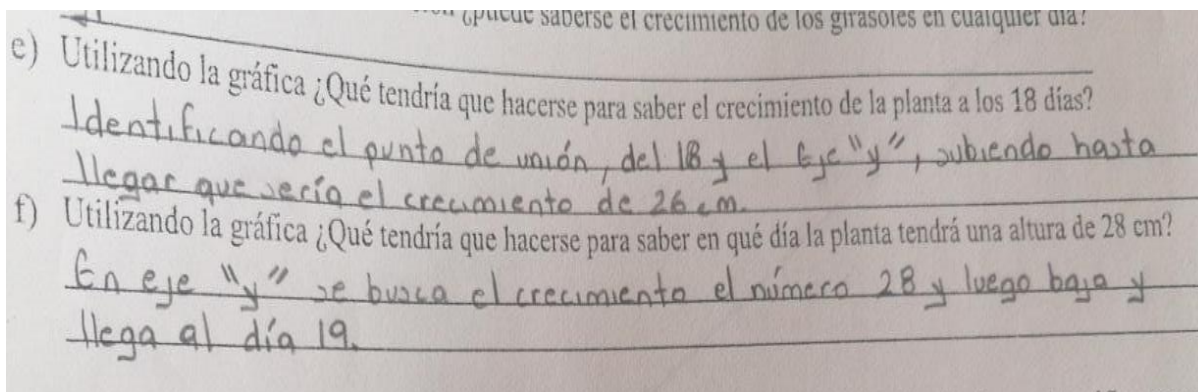 ¿puede saberse el crecimiento de los girasoles en cualquier día?
e) Utilizando la gráfica ¿Qué tendría que hacerse para saber el crecimiento de la planta a los 18 días?
Identificando el punto de unión, del 18 y el Eje "y", subiendo hasta
llegar que sería el crecimiento de 26 cm.
f) Utilizando la gráfica ¿Qué tendría que hacerse para saber en qué día la planta tendrá una altura de 28 cm?
En eje "y" se busca el crecimiento el número 28 y luego baja y
llega al día 19.